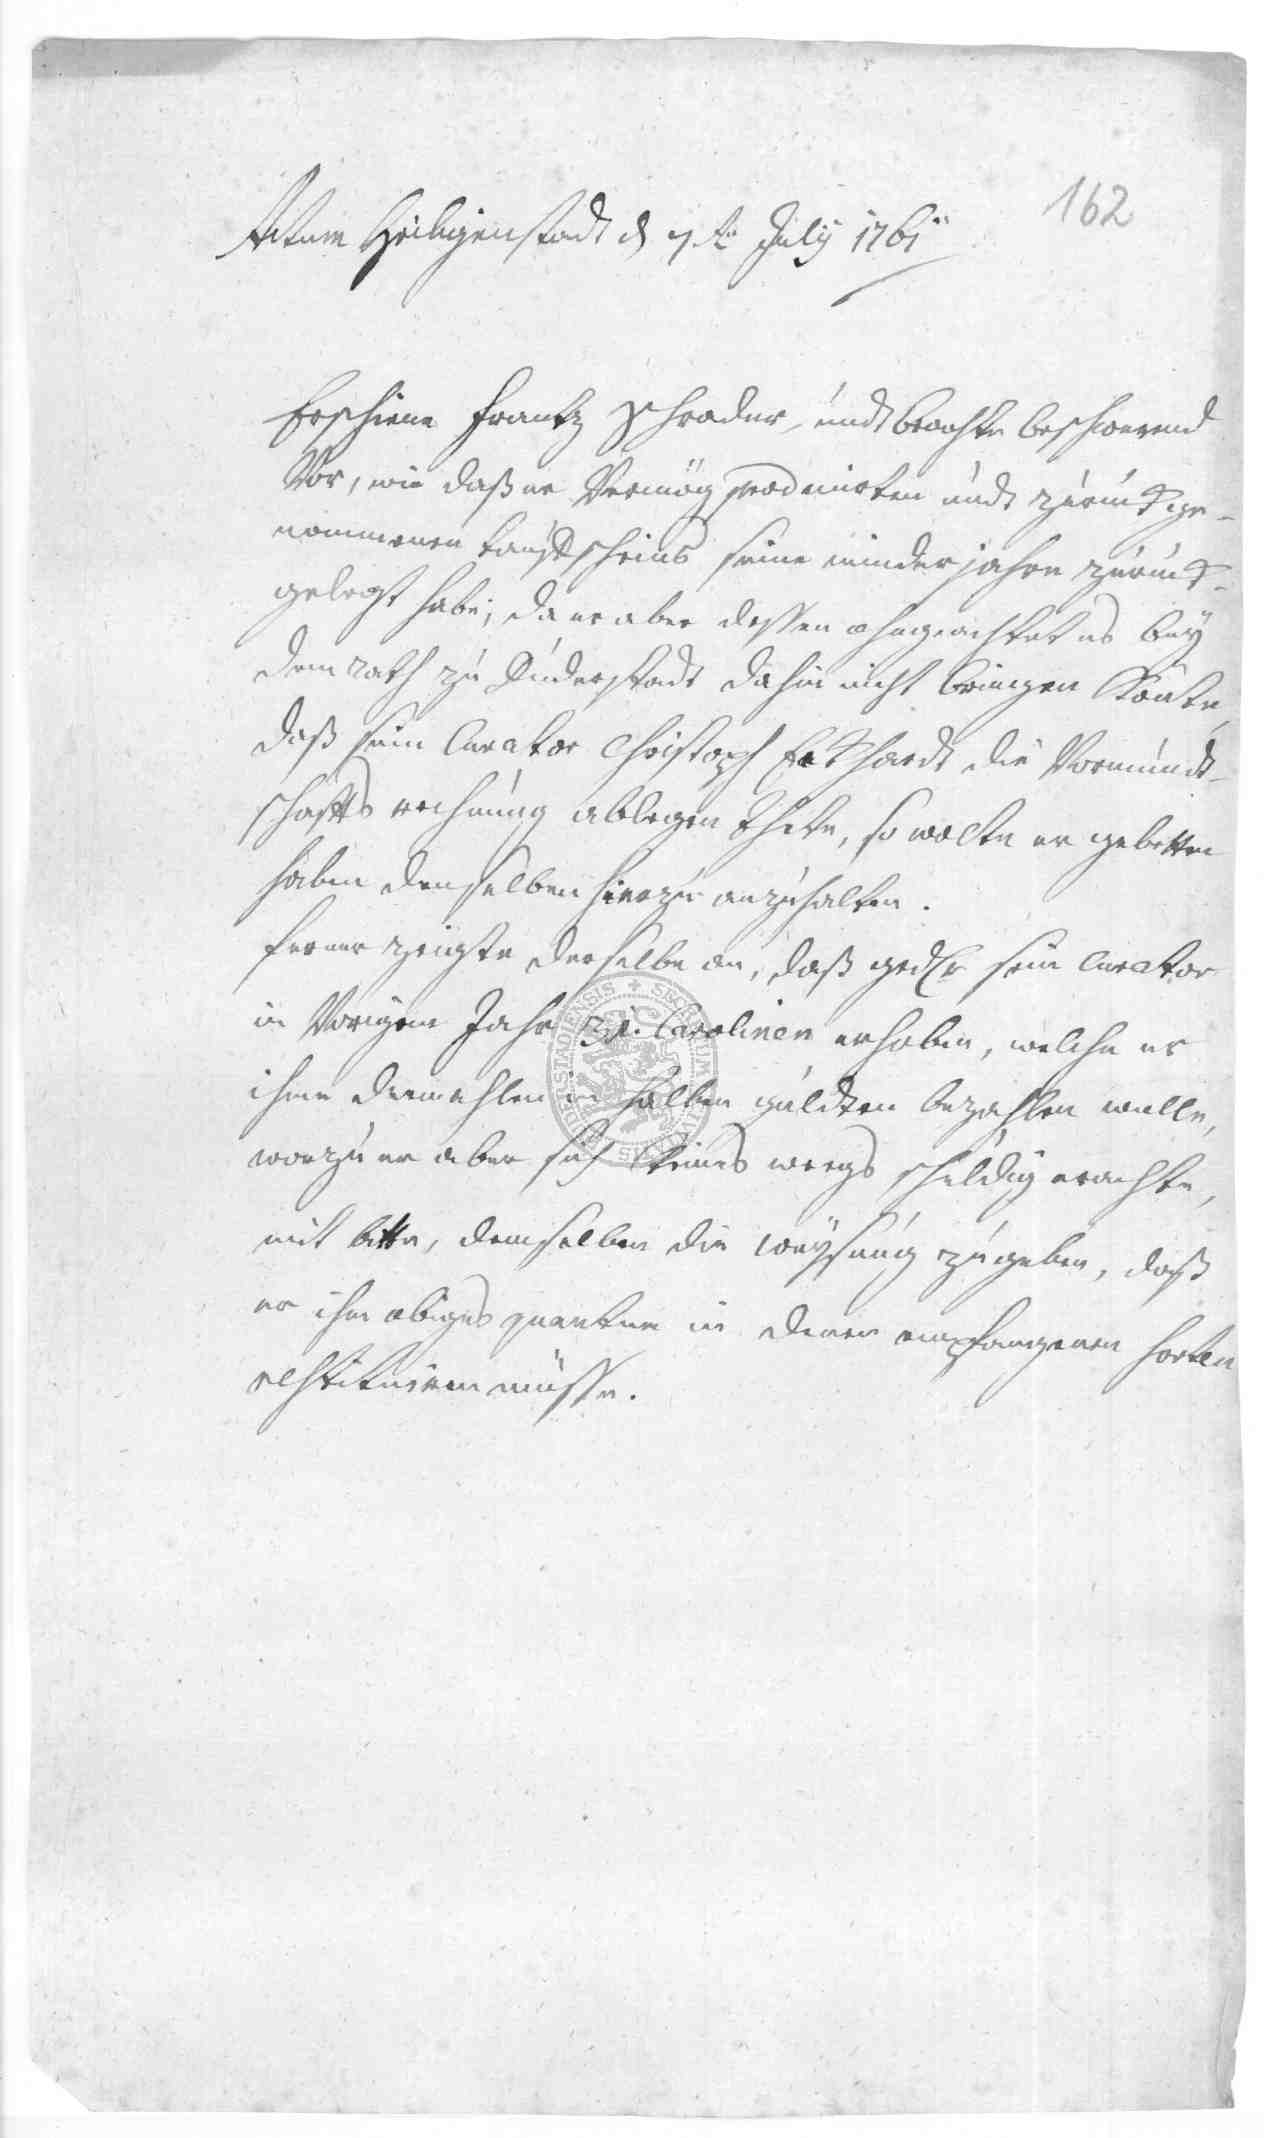 162
Actum Heiligenstadt d 7t July 1761
Erschiene Frantz Schrader, undt brachte beschwerend
Vor, wie daß er Vermög producirten undt zurückge-
nommenen tauffscheins seine minderjahre zurück-
gelegt habe; da er aber dessen ohngeachtet es bey
dem rath zu Duderstadt dahin nicht bringen könte,
daß sein Curator Christoph Eckhardt die Vormundt-
schaffts rechnung ablegen thete, so wolte er gebetten
haben denselben hierzu anzuhalten.
ferner zeigte derselbe an, daß gedr sein Curator
in Vorigem Jahr 31. Carolinen erhoben, welche er
ihme dermahlen in halben gulden bezahlen welle,
worzu er aber sich keines weegs schuldig erachte,
mit bitte, demselben die weysung zu geben, daß
er ihm obiges quantum in denen empfangenen sorten
restituiren müsse.